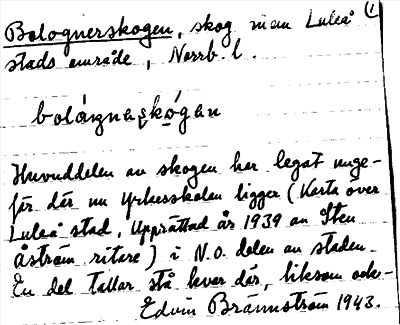 Bolognerskogen, skog inom Luleå (1
stads område, Norrb. l.
bolåŋnaskógan
Huvuddelen av skogen har legat unge-
för där nu Yrkesskolan ligger (Karta över
Luleå stad, Upprättad år 1939 av Sten
Åström ritare) i N.O. delen av staden.
En del tallar stå kvar där, liksom ock-
Edvin Brännström 1943.